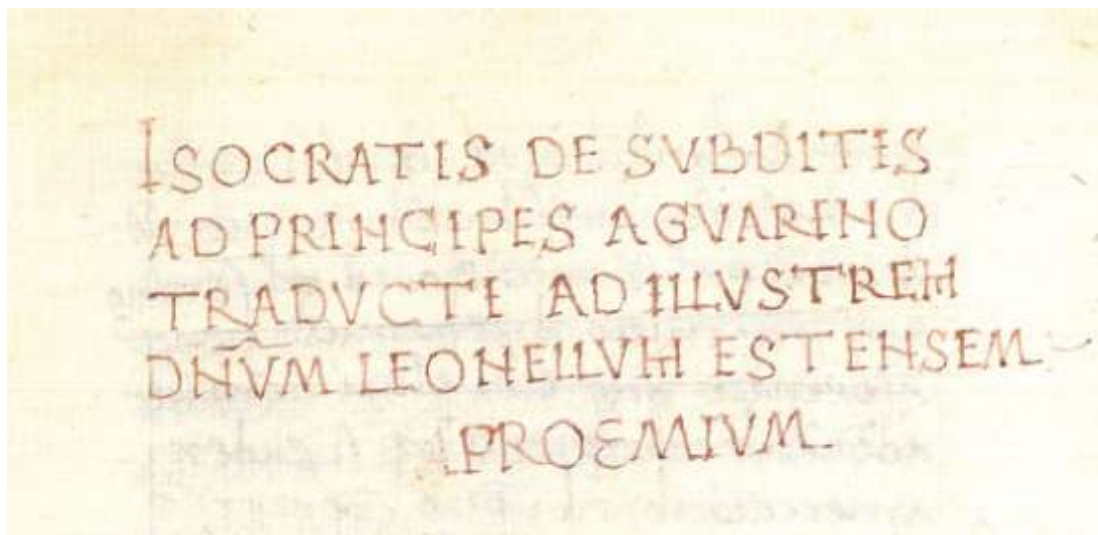 ISOCRATIS DE SVBDITIS
AD PRINCIPES A GVARINO
TRADVCTE AD ILLVSTREM
DNVM LEONELLVM ESTENSEM
PROEMIVM